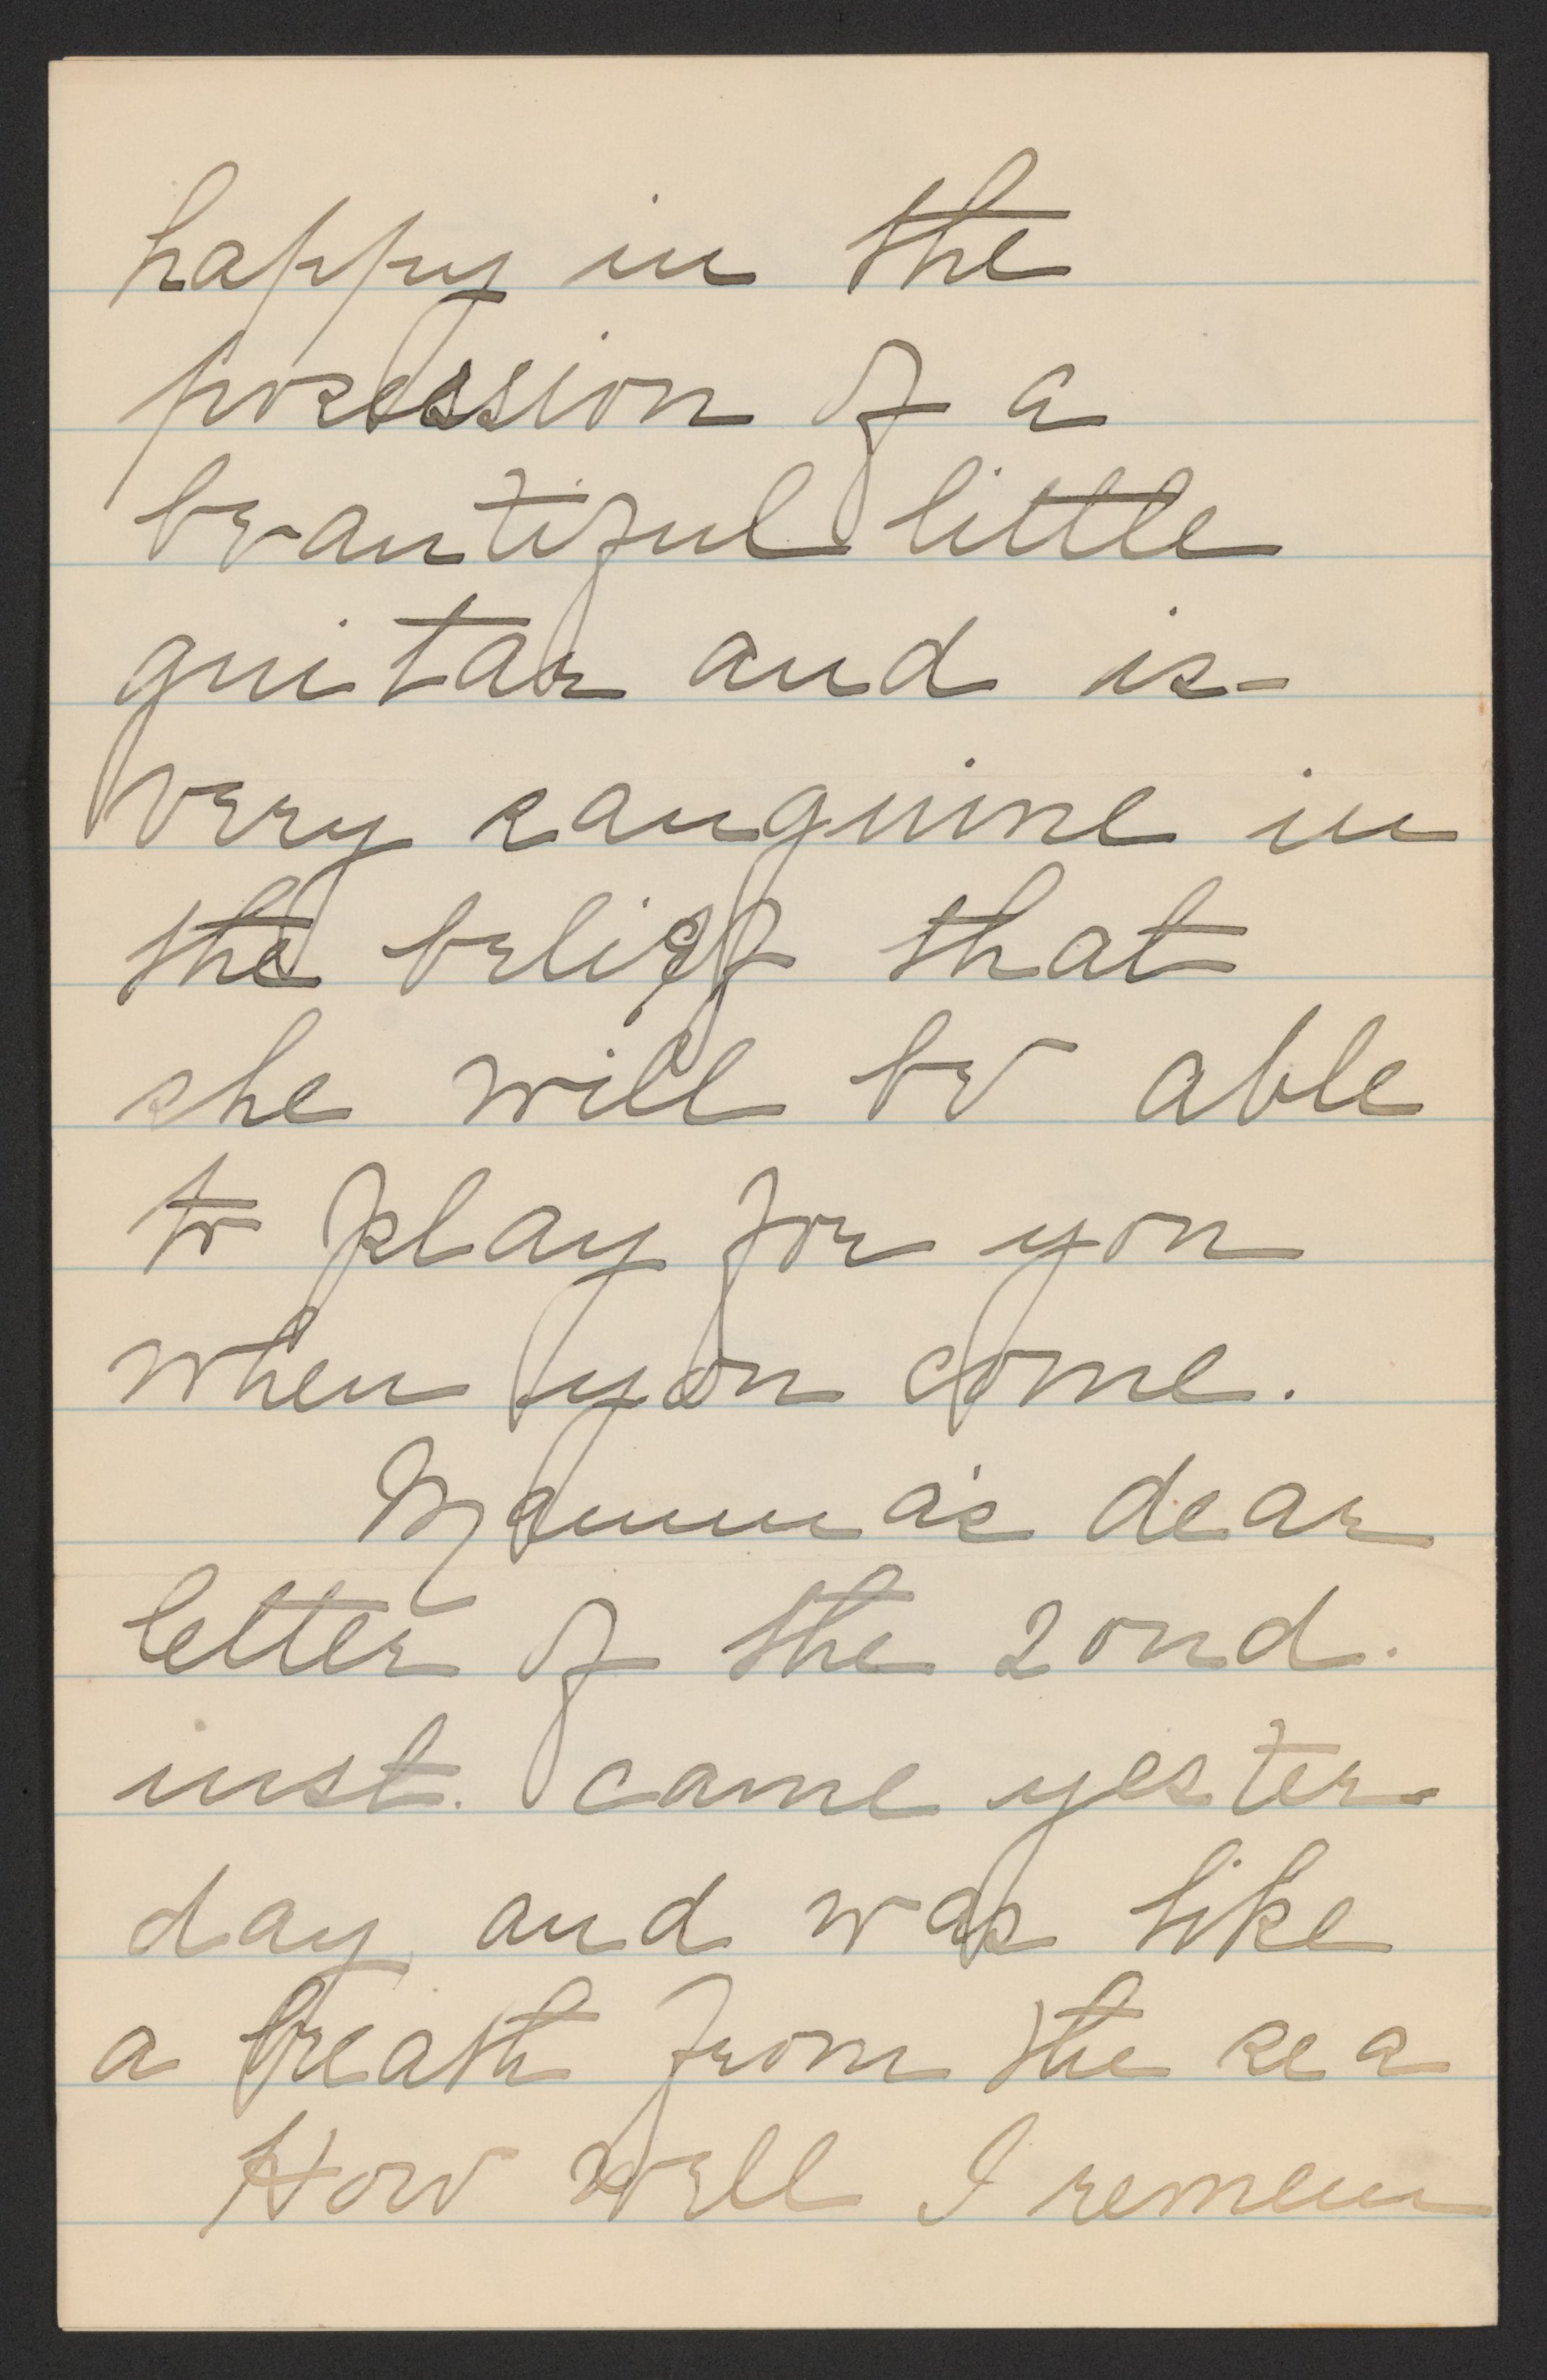 happy in the
posession of a
beautiful little
guitar and is-
very sanguine in
the belief that
she will be able
to play for you
when you come.
Mamma's dear
letter of the 2ond.
inst. came yester-
day and was like
a breath from the sea
How well I remem